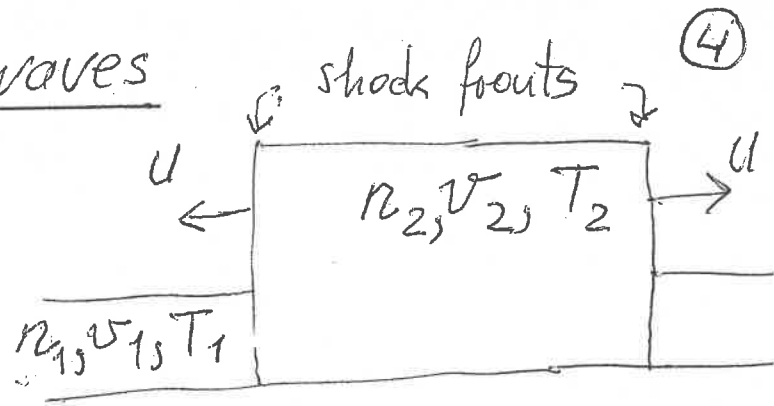 waves
④
shock fronts
u
n₂, v₂, T₂
u
n₁, v₁, T₁